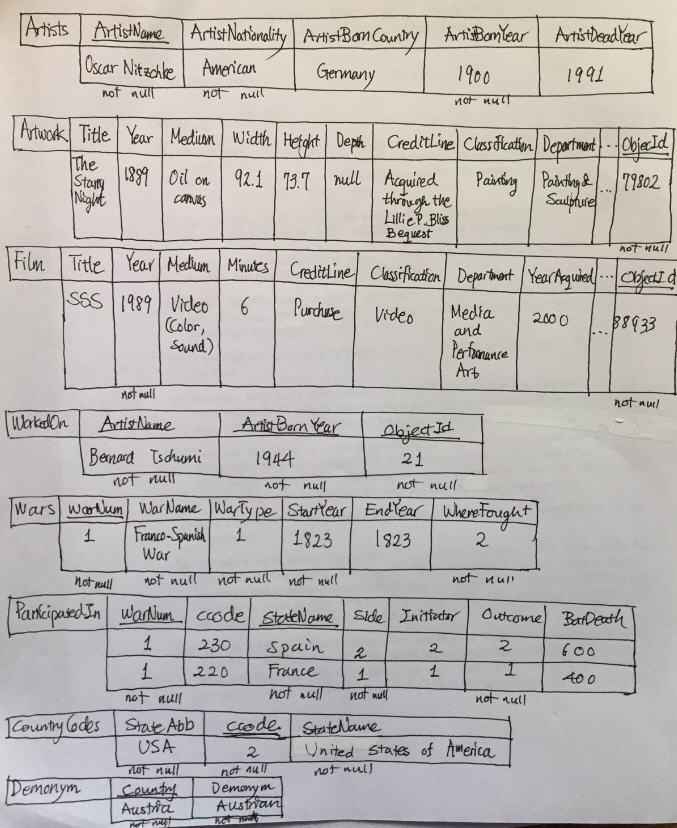 Artists ArtistName ArtistNationality ArtistBornCountry ArtistBornYear ArtistDeadYear
Oscar Nitzchke American Germany 1900 1991
not null not null not null
Artwork Title Year Medium Width Height Depth CreditLine Classification Department ... ObjecId
The Starry Night 1889 Oil on canvas 92.1 73.7 null Acquired through the Lillie P. Bliss Bequest Painting Painting & Sculpture ... 79802
not null
Film Title Year Medium Minutes CreditLine Classification Department YearAcquired ... ObjectId
SSS 1989 Video (Color, Sound) 6 Purchase Video Media and Performance Art 2000 ... 88933
not null not null
WorkedOn ArtistName ArtistBornYear ObjectId
Bernard Tschumi 1944 21
not null not null not null
Wars WarNum WarName WarType StartYear EndYear WhereFought
1 Franco-Spanish War 1 1823 1823 2
not null not null not null not null not null
ParticipatedIn WarNum ccode StateName Side Initiator Outcome BatDeath
1 230 Spain 2 2 2 600
1 220 France 1 1 1 400
not null not null not null not null
CountryCodes StateAbb ccode StateName
USA 2 United States of America
not null not null not null
Demonym Country Demonym
Austria Austrian
not null not null